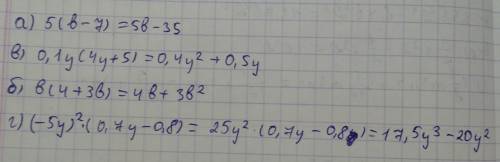 а) 5(в-7) =5в-35
в) 0,1y(4y+5)=0,4y²+0,5y
б) в(4+3в)=4в+3в²
г) (-5y)²·(0,7y-0,8)= 25y²·(0,7y-0,8)=17,5y³-20y²